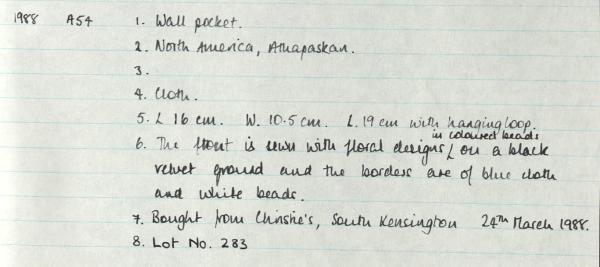 1988 A54 1. Wall pocket.
2. North America, Athapaskan.
3.
4. Cloth.
5. L 16 cm. W. 10.5 cm. L. 19 cm with hanging loop.
6. The front is sewn with floral designs in coloured beads on a black
velvet ground and the borders are of blue cloth
and white beads.
7. Bought from Christie's, South Kensington 24th March 1988.
8. Lot No. 283